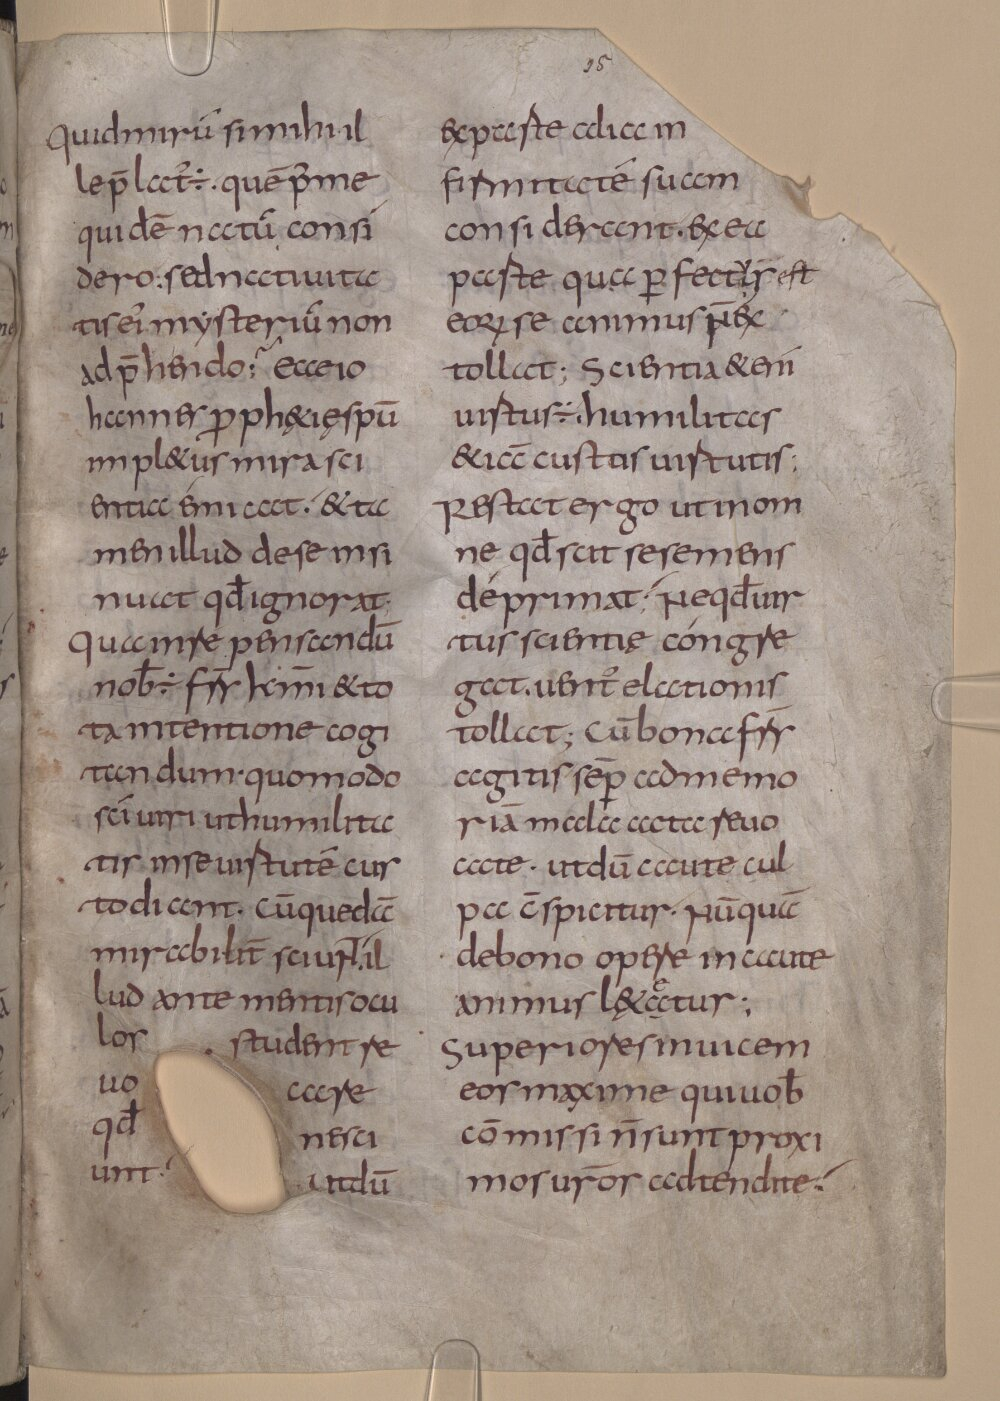 95
Quid mirū si mihi il
le p̄lat̄. quē p̄ me
quidē natū consi
dero. sed nativita
tis ei mysteriū non
ad p̄hendo? Ecce io
hannes p̄ph&ię spū
impl&us mira sci
entia emicat. & ta
men illud de se insi
nuat qđ ignorat.
Quain re pensandū
nob̄. fr̄s km̄i & to
ta intentione cogi
tandum. quomodo
sc̄i viri ut humilita
tis in se virtutē cus
todiant. Cū quedā
mirabilit̄ sciunt. il
lud ante mentis ocu
los student re
vo care
qđ nesci
unt. ut dū
ex parte alia in
firmitatē suam
considerant. ex ea
parte qua perfectus est
eorum se animus ñ ex
tollat; Scientia &eni
virtus. humilitas
&iā custus virtutis;
Restat ergo ut in om
ne qđ scit sese mens
déprimat. Ne qđ vir
tus scientię congre
gat. vent̄ elationis
tollat; Cū bona fr̄s
agitis sep̄ ad memo
riā mala acta revo
cate. ut dū caute cul
pa c̄spicitur. Nūquā
de bono opere incaute
animus l&ętur;
Superiores invicem
eos maxime qui vob̄
cōmissi ñ sunt proxi
mos vr̄os adtendite.